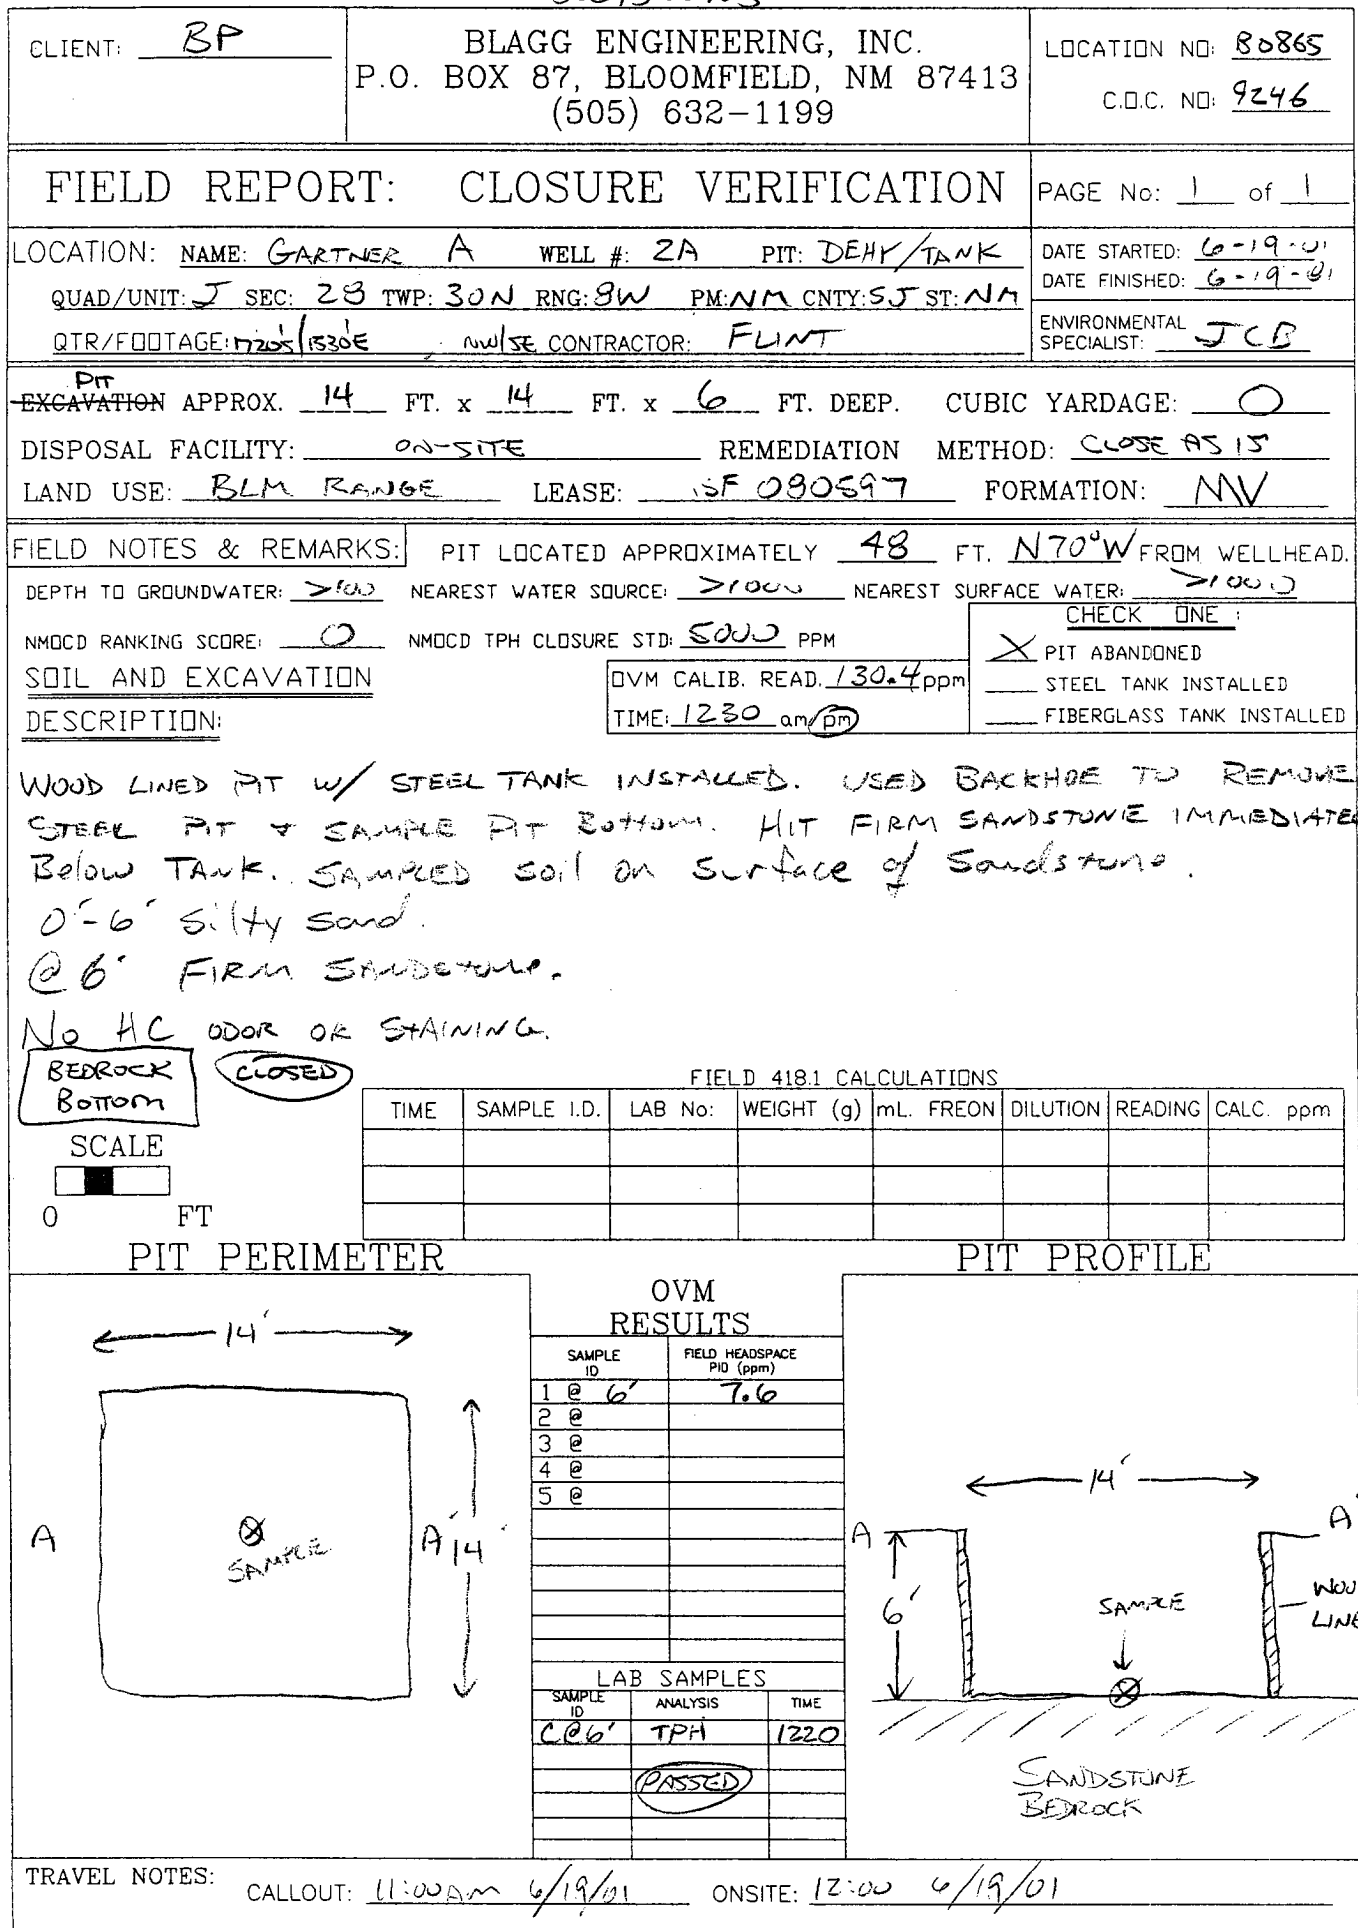 CLIENT: BP
BLAGG ENGINEERING, INC.
P.O. BOX 87, BLOOMFIELD, NM 87413
(505) 632-1199
LOCATION NO: B0865
C.O.C. NO: 9246
FIELD REPORT: CLOSURE VERIFICATION
PAGE No: 1 of 1
LOCATION: NAME: GARTNER A WELL #: 2A PIT: DEHY/TANK
QUAD/UNIT: J SEC: 28 TWP: 30N RNG: 8W PM: NM CNTY: SJ ST: NM
QTR/FOOTAGE: 1720'S/1530'E NW/SE CONTRACTOR: FLINT
DATE STARTED: 6-19-01
DATE FINISHED: 6-19-01
ENVIRONMENTAL
SPECIALIST: JCB
PIT
EXCAVATION APPROX. 14 FT. x 14 FT. x 6 FT. DEEP. CUBIC YARDAGE: 0
DISPOSAL FACILITY: ON-SITE REMEDIATION METHOD: CLOSE AS IS
LAND USE: BLM RANGE LEASE: SF 080597 FORMATION: MV
FIELD NOTES & REMARKS: PIT LOCATED APPROXIMATELY 48 FT. N70°W FROM WELLHEAD.
DEPTH TO GROUNDWATER: >100 NEAREST WATER SOURCE: >1000 NEAREST SURFACE WATER: >1000
NMOCD RANKING SCORE: 0 NMOCD TPH CLOSURE STD: 5000 PPM
CHECK ONE :
X PIT ABANDONED
STEEL TANK INSTALLED
FIBERGLASS TANK INSTALLED
SOIL AND EXCAVATION
DESCRIPTION:
OVM CALIB. READ. 130.4 ppm
TIME: 1230 am/pm
WOOD LINED PIT W/ STEEL TANK INSTALLED. USED BACKHOE TO REMOVE
STEEL PIT & SAMPLE PIT BOTTOM. HIT FIRM SANDSTONE IMMEDIATE
Below TANK. SAMPLED soil on surface of Sandstone.
0'-6' Silty sand.
@ 6' FIRM SANDSTONE.
No HC ODOR OR STAINING.
BEDROCK
BOTTOM
CLOSED
SCALE
0 FT
FIELD 418.1 CALCULATIONS
TIME SAMPLE I.D. LAB No: WEIGHT (g) mL. FREON DILUTION READING CALC. ppm
PIT PERIMETER
PIT PROFILE
14'
A
SAMPLE
A'
14'
OVM
RESULTS
SAMPLE ID FIELD HEADSPACE PID (ppm)
1 @ 6' 7.6
2 @
3 @
4 @
5 @
LAB SAMPLES
SAMPLE ID ANALYSIS TIME
C@6' TPH 1220
PASSED
14'
A
A'
6'
SAMPLE
WOO
LINE
SANDSTONE
BEDROCK
TRAVEL NOTES: CALLOUT: 11:00 AM 6/19/01 ONSITE: 12:00 6/19/01